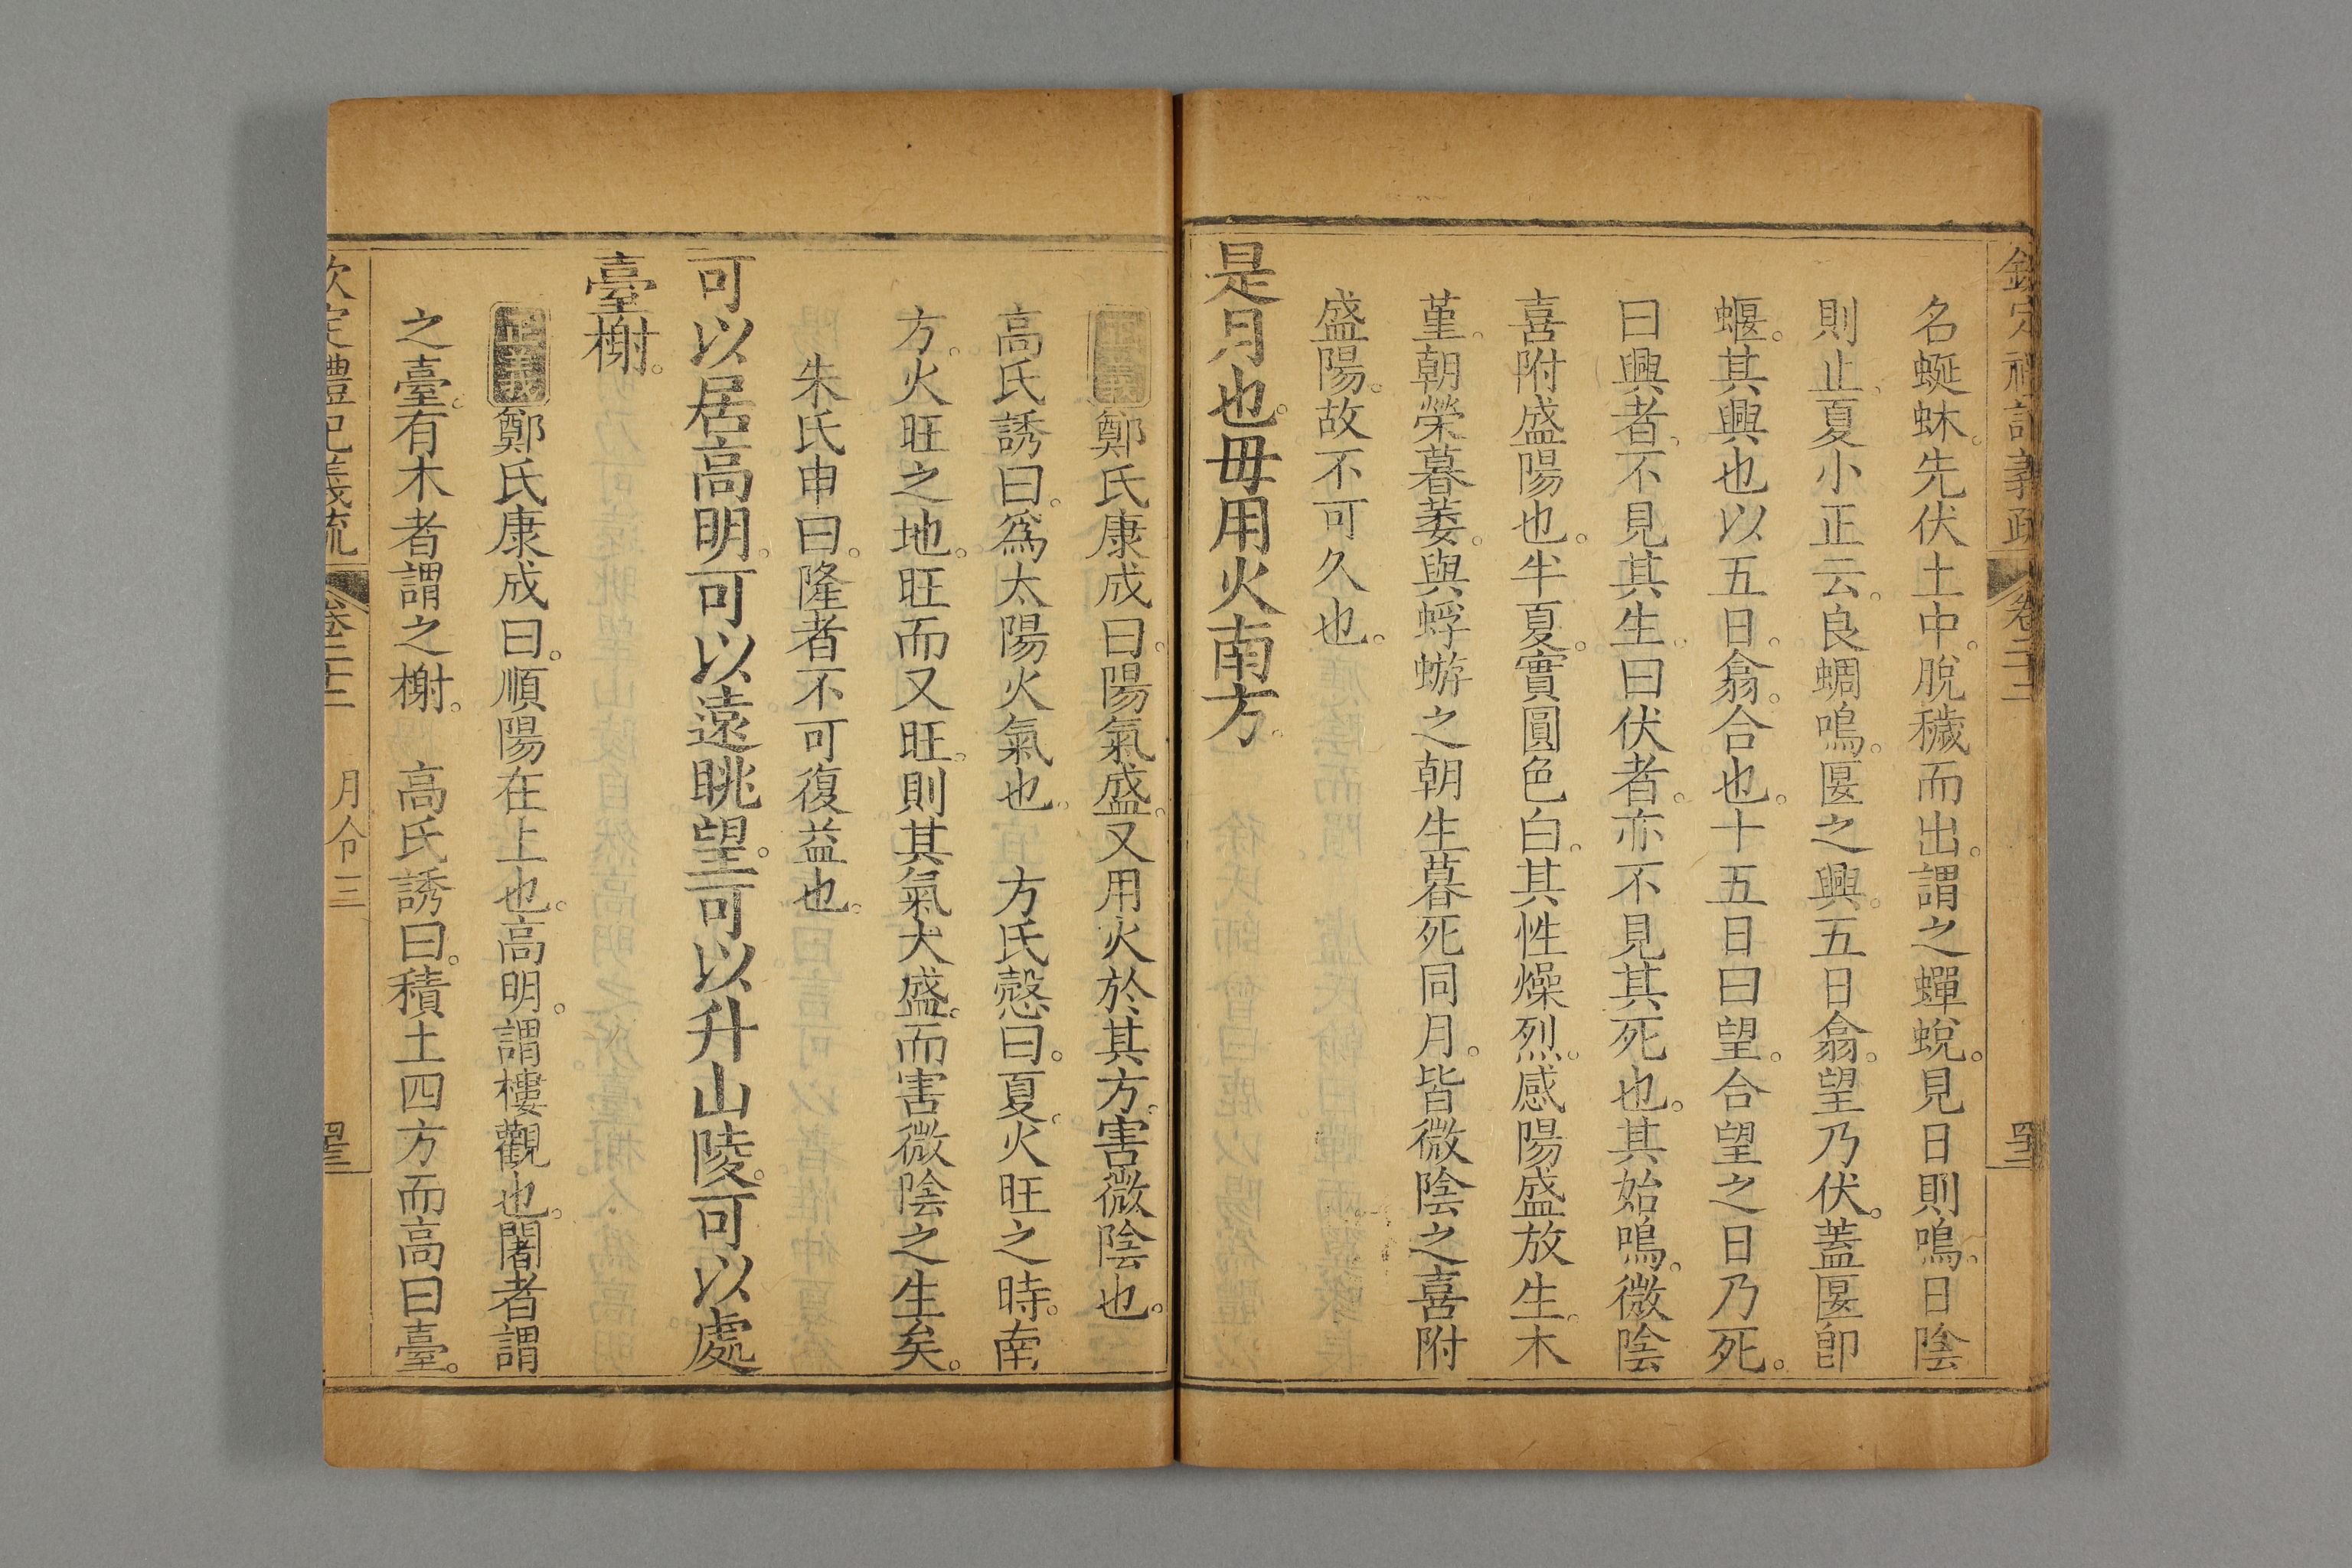 欽定禮記義疏 卷二十二
名蜒蚞。先伏土中。脫穢而出。謂之蟬蛻。見日則鳴。日陰
則止。夏小正云。良蜩鳴。匽之興。五日翕。望乃伏。蓋匽卽
蝘。其興也以五日。翕。合也。十五日曰望。合望之日乃死。
曰興者。不見其生。曰伏者。亦不見其死也。其始鳴。微陰
喜附盛陽也。半夏。實圓色白。其性燥烈。感陽盛放生。木
堇。朝榮暮萎。與蜉蝣之朝生暮死同月。皆微陰之喜附
盛陽。故不可久也。
是月也。毋用火南方。
正義鄭氏康成曰。陽氣盛。又用火於其方。害微陰也。
高氏誘曰。爲太陽火氣也。 方氏慤曰。夏火旺之時。南
方。火旺之地。旺而又旺。則其氣大盛。而害微陰之生矣。
朱氏申曰。隆者不可復益也。
可以居高明。可以遠眺望。可以升山陵。可以處
臺榭。
正義鄭氏康成曰。順陽在上也。高明。謂樓觀也。闍者謂
之臺。有木者謂之榭。 高氏誘曰。積土四方而高曰臺。
欽定禮記義疏 卷二十二 月令三